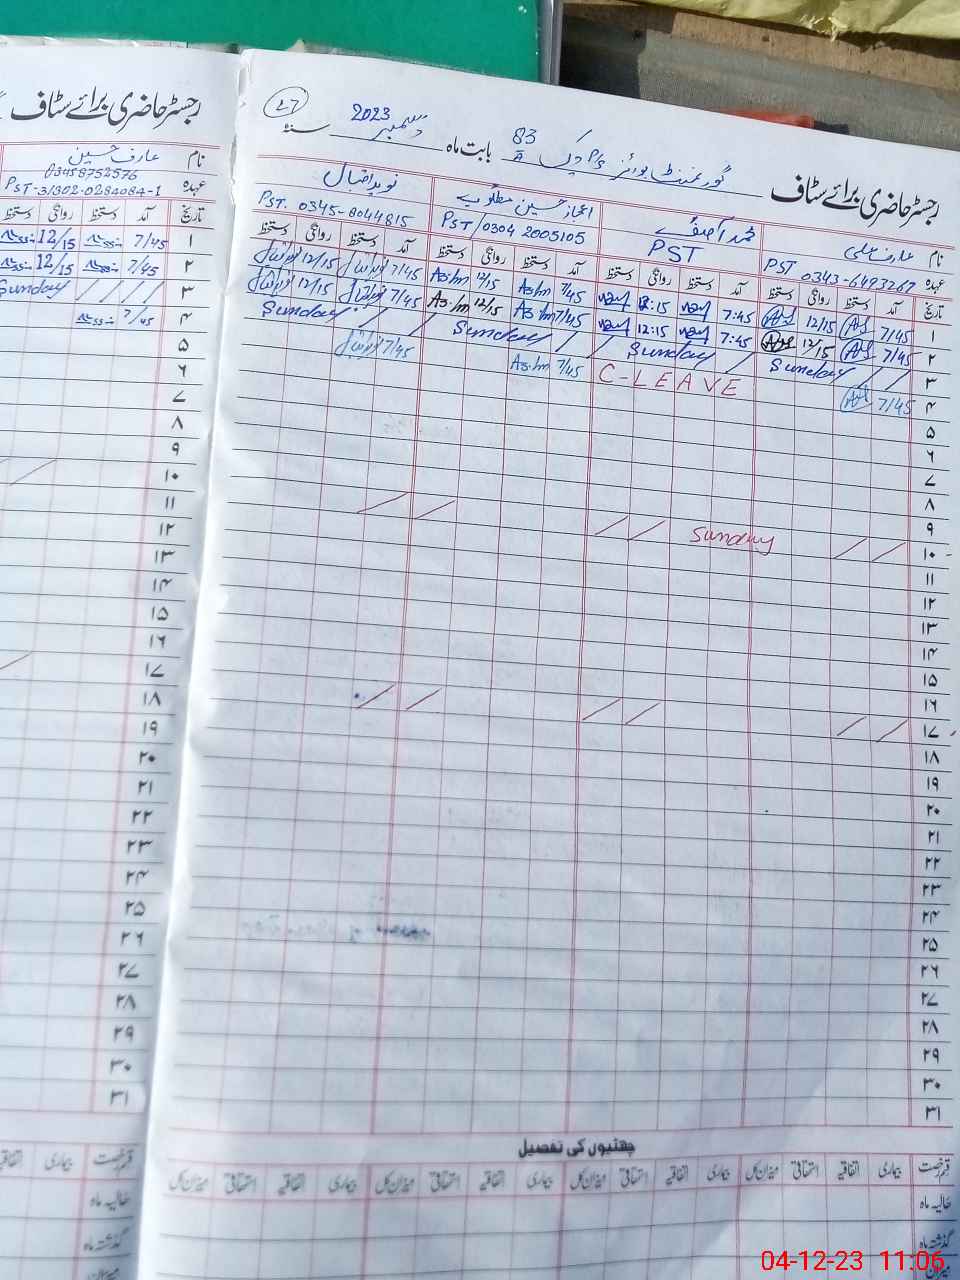 رجسٹر حاضری برائے سٹاف
نام عارف حسین
03458752576
عہدہ PST-31302-0284084-1
تاریخ آمد دستخط روانگی دستخط
۱ 7/45 12/15
۲ 7/45 12/15
۳ Sunday
۴ 7/45
۵
۶
۷
۸
۹
۱۰
۱۱
۱۲
۱۳
۱۴
۱۵
۱۶
۱۷
۱۸
۱۹
۲۰
۲۱
۲۲
۲۳
۲۴
۲۵
۲۶
۲۷
۲۸
۲۹
۳۰
۳۱
قسم رخصت بیماری اتفاقیہ
حالیہ ماہ
گذشتہ ماہ
میزان
27
رجسٹر حاضری برائے سٹاف گورنمنٹ بوائز P/S چک 83 بابت ماہ دسمبر سنہ 2023
نام عارف علی محمد آصف اعجاز حسین مطلوب نوید اقبال
عہدہ PST 0343-6493267 PST PST/0304 2005105 PST. 0345-8044815
تاریخ آمد دستخط روانگی دستخط آمد دستخط روانگی دستخط آمد دستخط روانگی دستخط آمد دستخط روانگی دستخط
۱ 7/45 12/15 7:45 12:15 7/45 12/15 7/45 12/15
۲ 7/45 12/15 7:45 12:15 7/45 12/15 7/45 12/15
۳ Sunday Sunday Sunday Sunday
۴ 7/45 C-LEAVE 7/45 7/45
۵
۶
۷
۸
۹
۱۰ Sunday
۱۱
۱۲
۱۳
۱۴
۱۵
۱۶
۱۷
۱۸
۱۹
۲۰
۲۱
۲۲
۲۳
۲۴
۲۵
۲۶
۲۷
۲۸
۲۹
۳۰
۳۱
چھٹیوں کی تفصیل
قسم رخصت بیماری اتفاقیہ استحقاقی میزان کل بیماری اتفاقیہ استحقاقی میزان کل بیماری اتفاقیہ استحقاقی میزان کل بیماری اتفاقیہ استحقاقی میزان کل
حالیہ ماہ
گذشتہ ماہ
میزان
04-12-23 11:06